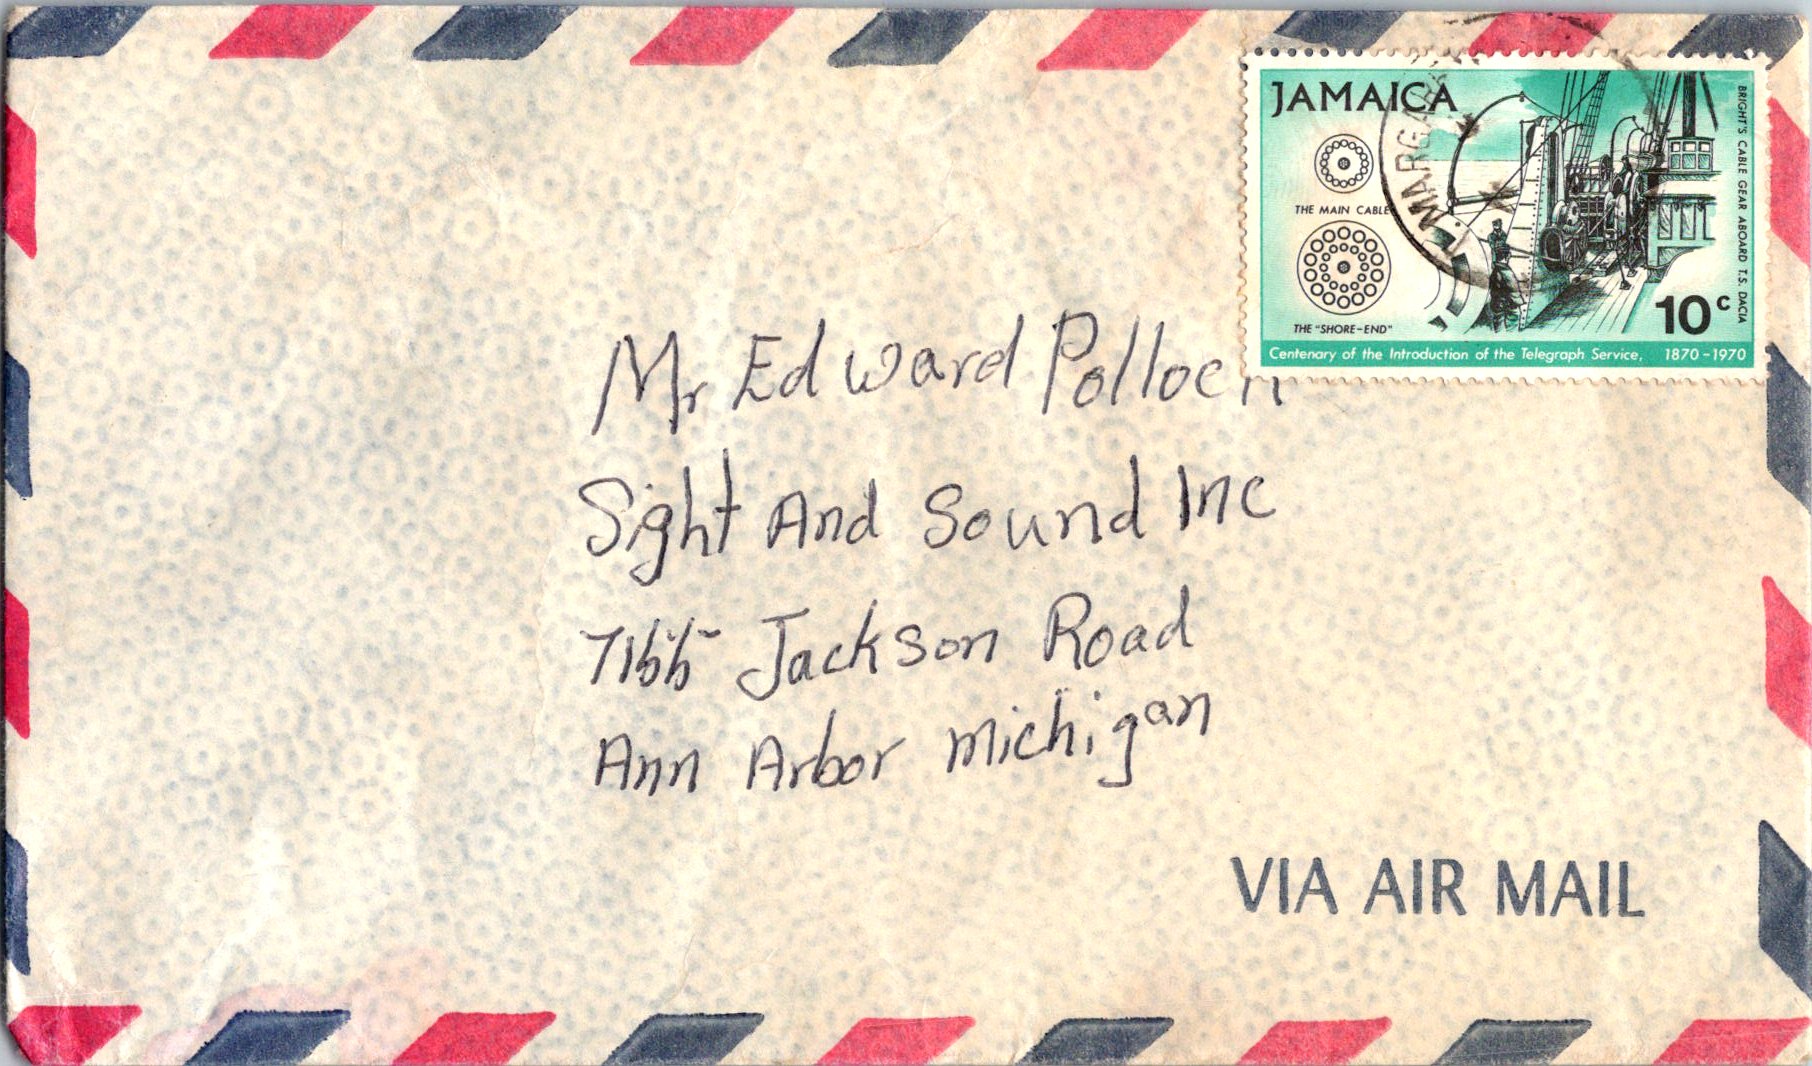 JAMAICA
BRIGHT'S CABLE GEAR ABOARD T.S. DACIA
THE MAIN CABLE
THE "SHORE-END"
10c
Centenary of the Introduction of the Telegraph Service, 1870-1970
Mr Edward Pollock
Sight And Sound Inc
Jackson Road
Ann Arbor Michigan
VIA AIR MAIL